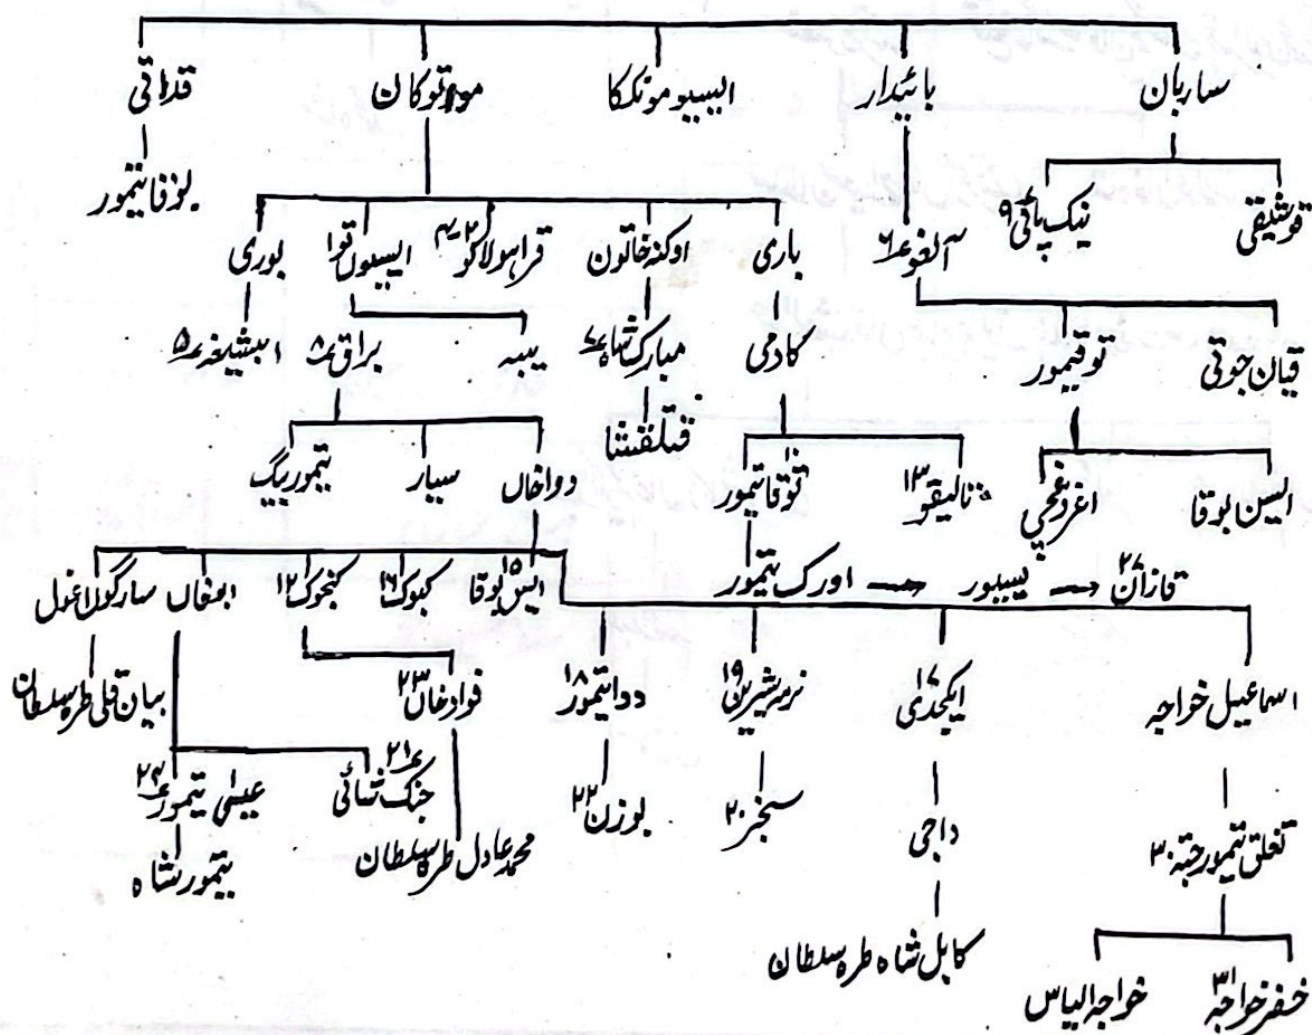 ساربان بائیدار ایسیو موتککا مواتوکان قداقی
قوشیقی نیک پائی ۹ آلغو ۶ باری اوکنہ خاتون قراہولاکو ۲-۴ ایسوں توا ۱ بوری بوزقا تیمور
قیان جوتی توقیمور کادمی مبارک شاہ ۷ یببہ براق ۸ ابشیلغہ ۵
ایسن ابوقا اغردغچی نالیقو ۱۳ توقا تیمور ۱۰ قتلقشا دوا خاں سیبار تیمور بیگ
قازان ۲۷ یسببور اورک تیمور ایس بوقا ۱۵ کبوک ۱۶ کنجوک ۱۲ ابوغاں سارگول اغول
اسماعیل خواجہ ایکجدی ۱۷ ترمہ شیریں ۱۹ دوا تیمور ۱۸ فواد خاں ۲۳ بیان قلی طرہ سلطان
تغلق تیمور جتہ ۳۰ داجی سنجر ۲۰ بوزن ۲۲ محمد عادل طرہ سلطان جنک شائی ۲۱ عیسٰی تیمور ۲۴
تیمور شاہ
کابل شاہ طرہ سلطان
خضر خواجہ ۳۱ خواجہ الیاس